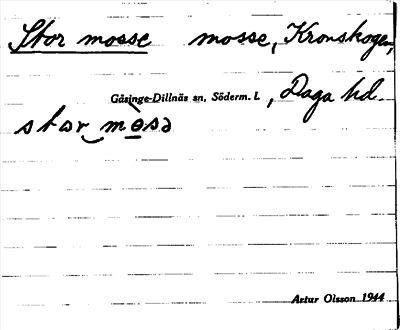 Stor mosse mosse, Kronskogen,
Gåsinge-Dillnäs sn, Söderm. l., Daga hd.
star mòsə
Artur Olsson 1944